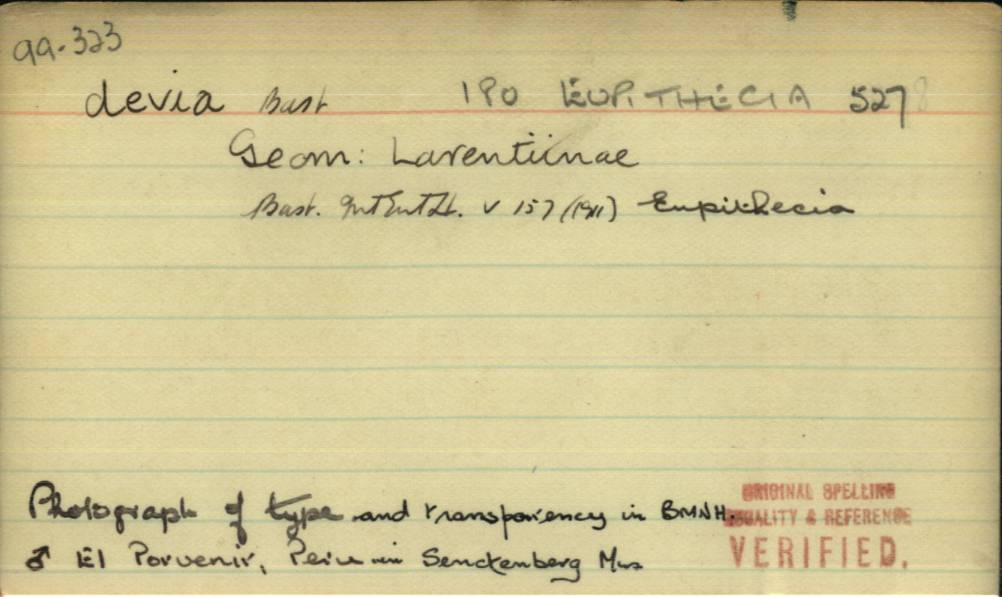 99-323
devia Bast 190 EUPITHECIA 5278
Geom: Larentiinae
Bast. Int Ent Z. v 157 (1911) Eupithecia
Photograph of type and transparency in BMNH.
♂ El Porvenir, Peru in Senckenberg Mus
ORIGINAL SPELLING
QUALITY & REFERENCE
VERIFIED.